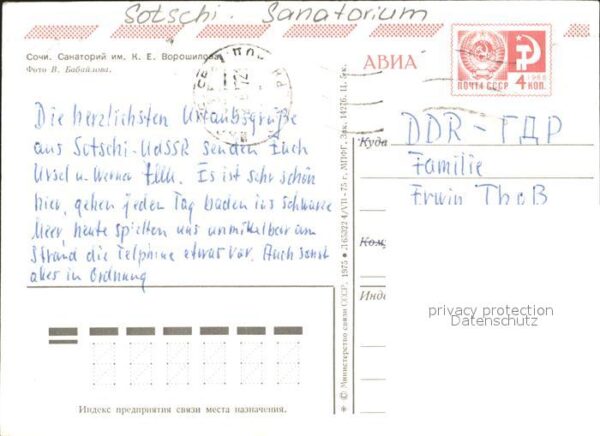 Sotschi. Sanatorium
Сочи. Санаторий им. К. Е. Ворошилова.
Фото В. Бабайлова.
АВИА
ПОЧТА СССР 4 КОП.
1966
Die herzlichsten Urlaubsgrüße
aus Sotschi-UdSSR senden Euch
Ursel u. Werner. Es ist sehr schön
hier, gehen jeden Tag baden ins schwarze
Meer, heute spielten uns unmittelbar am
Strand die Telphine etwas vor. Auch sonst
alles in Ordnung
Куда
DDR - ГДР
Familie
Erwin Thoß
Кому
Инде
privacy protection
Datenschutz
Индекс предприятия связи места назначения.
* © Министерство связи СССР, 1975 • Л 65322 4/VII-75 г. МПФГ. Зак. 14276. Ц. 5 к.